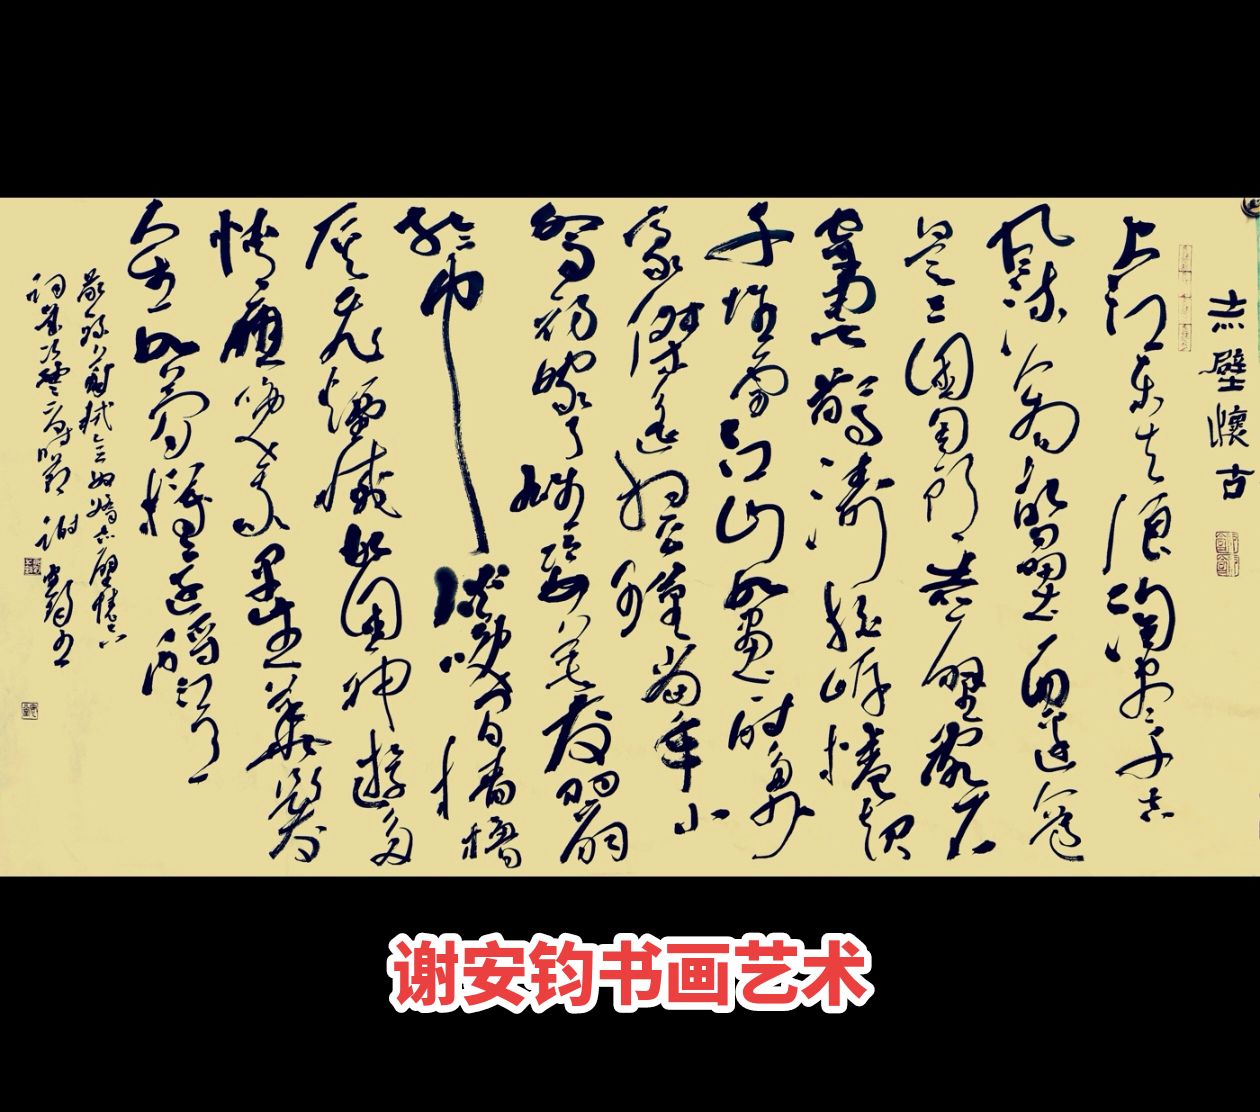 赤壁懷古
大江東去浪淘盡千古
風流人物故壘西邊人道
是三國周郎赤壁亂石
穿空驚濤拍岸捲起
千堆雪江山如畫一時多少
豪傑遙想公瑾當年小
喬初嫁了雄姿英發羽扇
綸巾談笑間檣櫓
灰飛煙滅故國神遊多
情應笑我早生華髮
人生如夢一樽還酹江月
敬錄蘇軾念奴嬌赤壁懷古
詞 謝安鈞書
谢安钧书画艺术